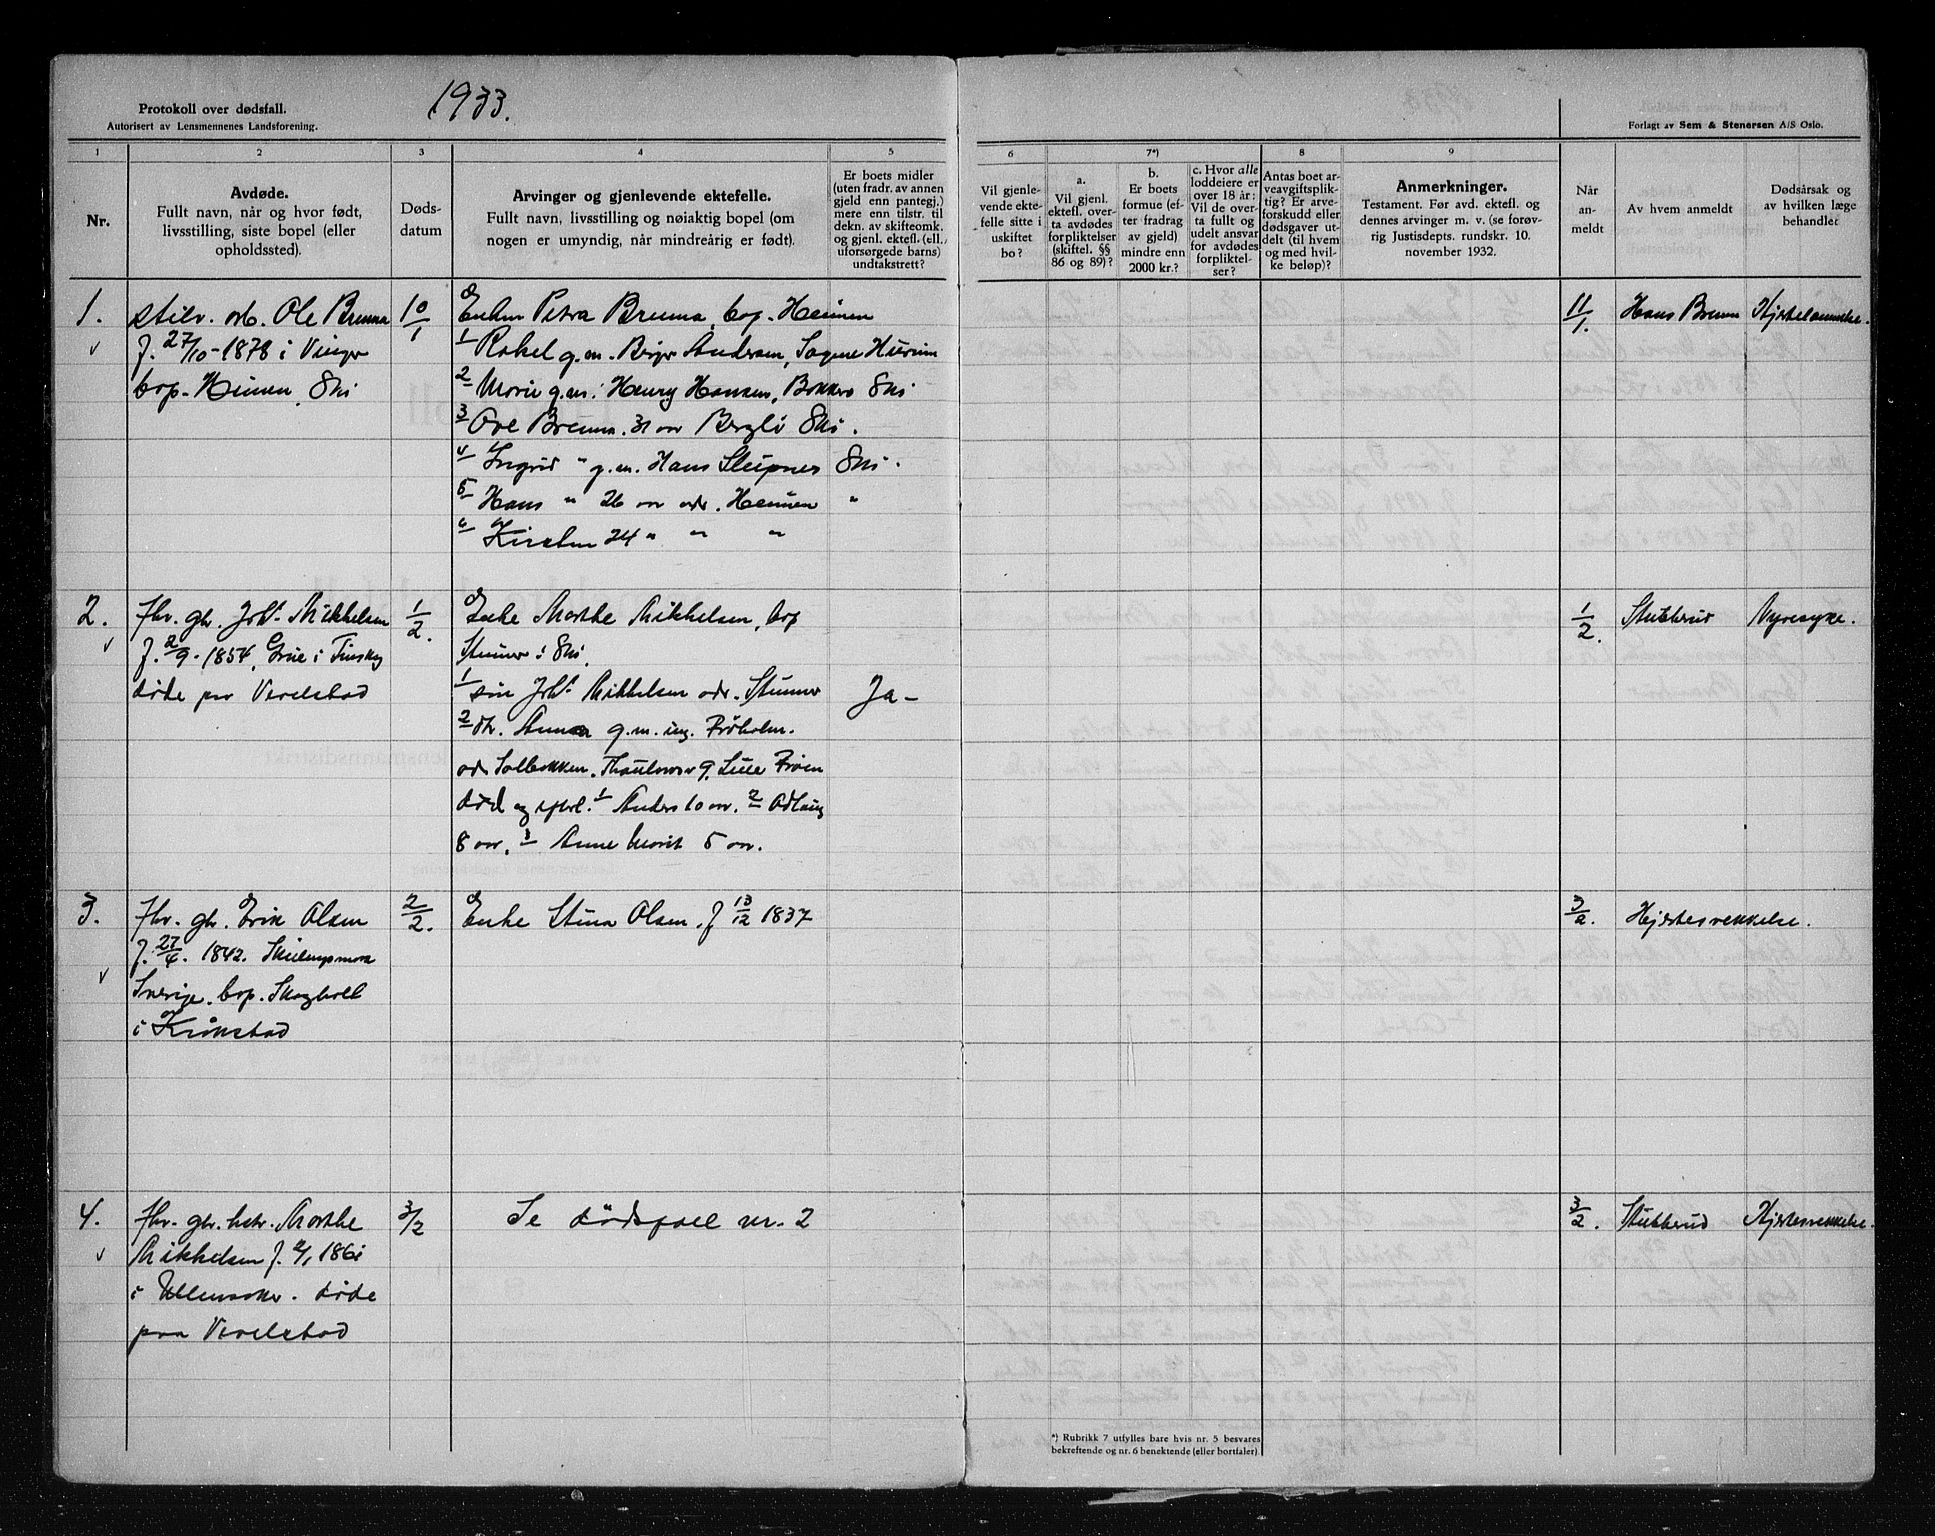 1933.
Protokoll over dødsfall.
Autorisert av Lensmennenes Landsforening.
Forlagt av Sem & Stenersen A/S Oslo.
1 2 3 4 5 6 7*) 8 9
Nr.
Avdøde.
Fullt navn, når og hvor født,
livsstilling, siste bopel (eller
opholdssted).
Døds-
datum
Arvinger og gjenlevende ektefelle.
Fullt navn, livsstilling og nøiaktig bopel (om
nogen er umyndig, når mindreårig er født).
Er boets midler
(uten fradr. av annen
gjeld enn pantegj.)
mere enn tilstr. til
dekn. av skifteomk.
og gjenl. ektef. (ell.
uforsørgede barns)
undtakstrett?
Vil gjenle-
vende ekte-
felle sitte i
uskiftet
bo?
a.
Vil gjenl.
ektefl. over-
ta avdødes
forpliktelser
(skiftel. §§
86 og 89)?
b.
Er boets
formue (ef-
ter fradrag
av gjeld)
mindre enn
2000 kr.?
c. Hvor alle
loddeiere er
over 18 år:
Vil de over-
ta fullt og
udelt ansvar
for avdødes
forpliktel-
ser?
Antas boet ar-
veavgiftsplik-
tig? Er arve-
forskudd eller
dødsgaver ut-
delt (til hvem
og med hvil-
ke beløp)?
Anmerkninger.
Testament. Før avd. ektefl. og
dennes arvinger m. v. (se forøv-
rig Justisdepts. rundskr. 10.
november 1932.
Når
an-
meldt
Av hvem anmeldt
Dødsårsak og
av hvilken læge
behandlet
1.
stilv. arb. Ole Brenna
f. 27/10-1878 i Vinger
bop. Heimen, Ski
10/1
Enken Petra Brenna, bop. Heimen
1 Rakel g.m. Birger Andersen, Sagene Hurum
2 Marie g.m. Henry Hansen, Bakken Ski
3 Ove Brenna. 31 aar Bergli Ski.
4 Ingrid " g.m. Hans Sleipnes Ski.
5 Hans " 26 aar adr. Heimen "
6 Kirsten 24 " " "
11/1.
Hans Brenna
Hjertelammelse.
2.
fhv. gbr. Joh. Mikkelsen
f. 2/9-1854, Grue i Finskog
døde paa Verelstad
1/2.
Enke Marthe Mikkelsen, bop
Stunner i Ski.
1 søn Joh. Mikkelsen adr. Stunner
2 dtr. Anna g.m. ing. Frøholm.
adr Solbakken. Thaulows v 9. Lille Frøen
død og efterl. 1 Anders 10 aar. 2 Odlaug
8 aar. 3 Anne Marit 5 aar.
Ja -
1/2.
Stubberud
Nyresyke.
3.
fhv. gbr. Erik Olsen
f. 27/4. 1842. Skillingsmark
Sverige. bop. Skogholt
i Kråkstad
2/2.
Enke Stina Olsen. f 13/12 1837
3/2.
Hjertesvekkelse.
4.
fhv. gbr. hstr. Marthe
Mikkelsen f. 1861
i Ullensaker. døde
paa Verelstad
3/2
Se dødsfall nr. 2
3/2.
Stubberud
Hjertesvekkelse.
*) Rubrikk 7 utfylles bare hvis nr. 5 besvares
bekreftende og nr. 6 benektende (eller bortfaler).